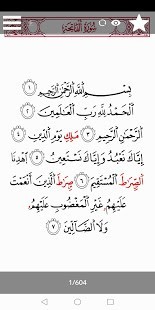 سُورَةُ الْفَاتِحَةِ
بِسْمِ اللَّهِ الرَّحْمَٰنِ الرَّحِيمِ ١
الْحَمْدُ لِلَّهِ رَبِّ الْعَٰلَمِينَ ٢
الرَّحْمَٰنِ الرَّحِيمِ ٣ مَلِكِ يَوْمِ الدِّينِ ٤
إِيَّاكَ نَعْبُدُ وَإِيَّاكَ نَسْتَعِينُ ٥ اهْدِنَا
الصِّرَٰطَ الْمُسْتَقِيمَ ٦ صِرَٰطَ الَّذِينَ أَنْعَمْتَ
عَلَيْهِمْ غَيْرِ الْمَغْضُوبِ عَلَيْهِمْ
وَلَا الضَّالِّينَ ٧
1/604